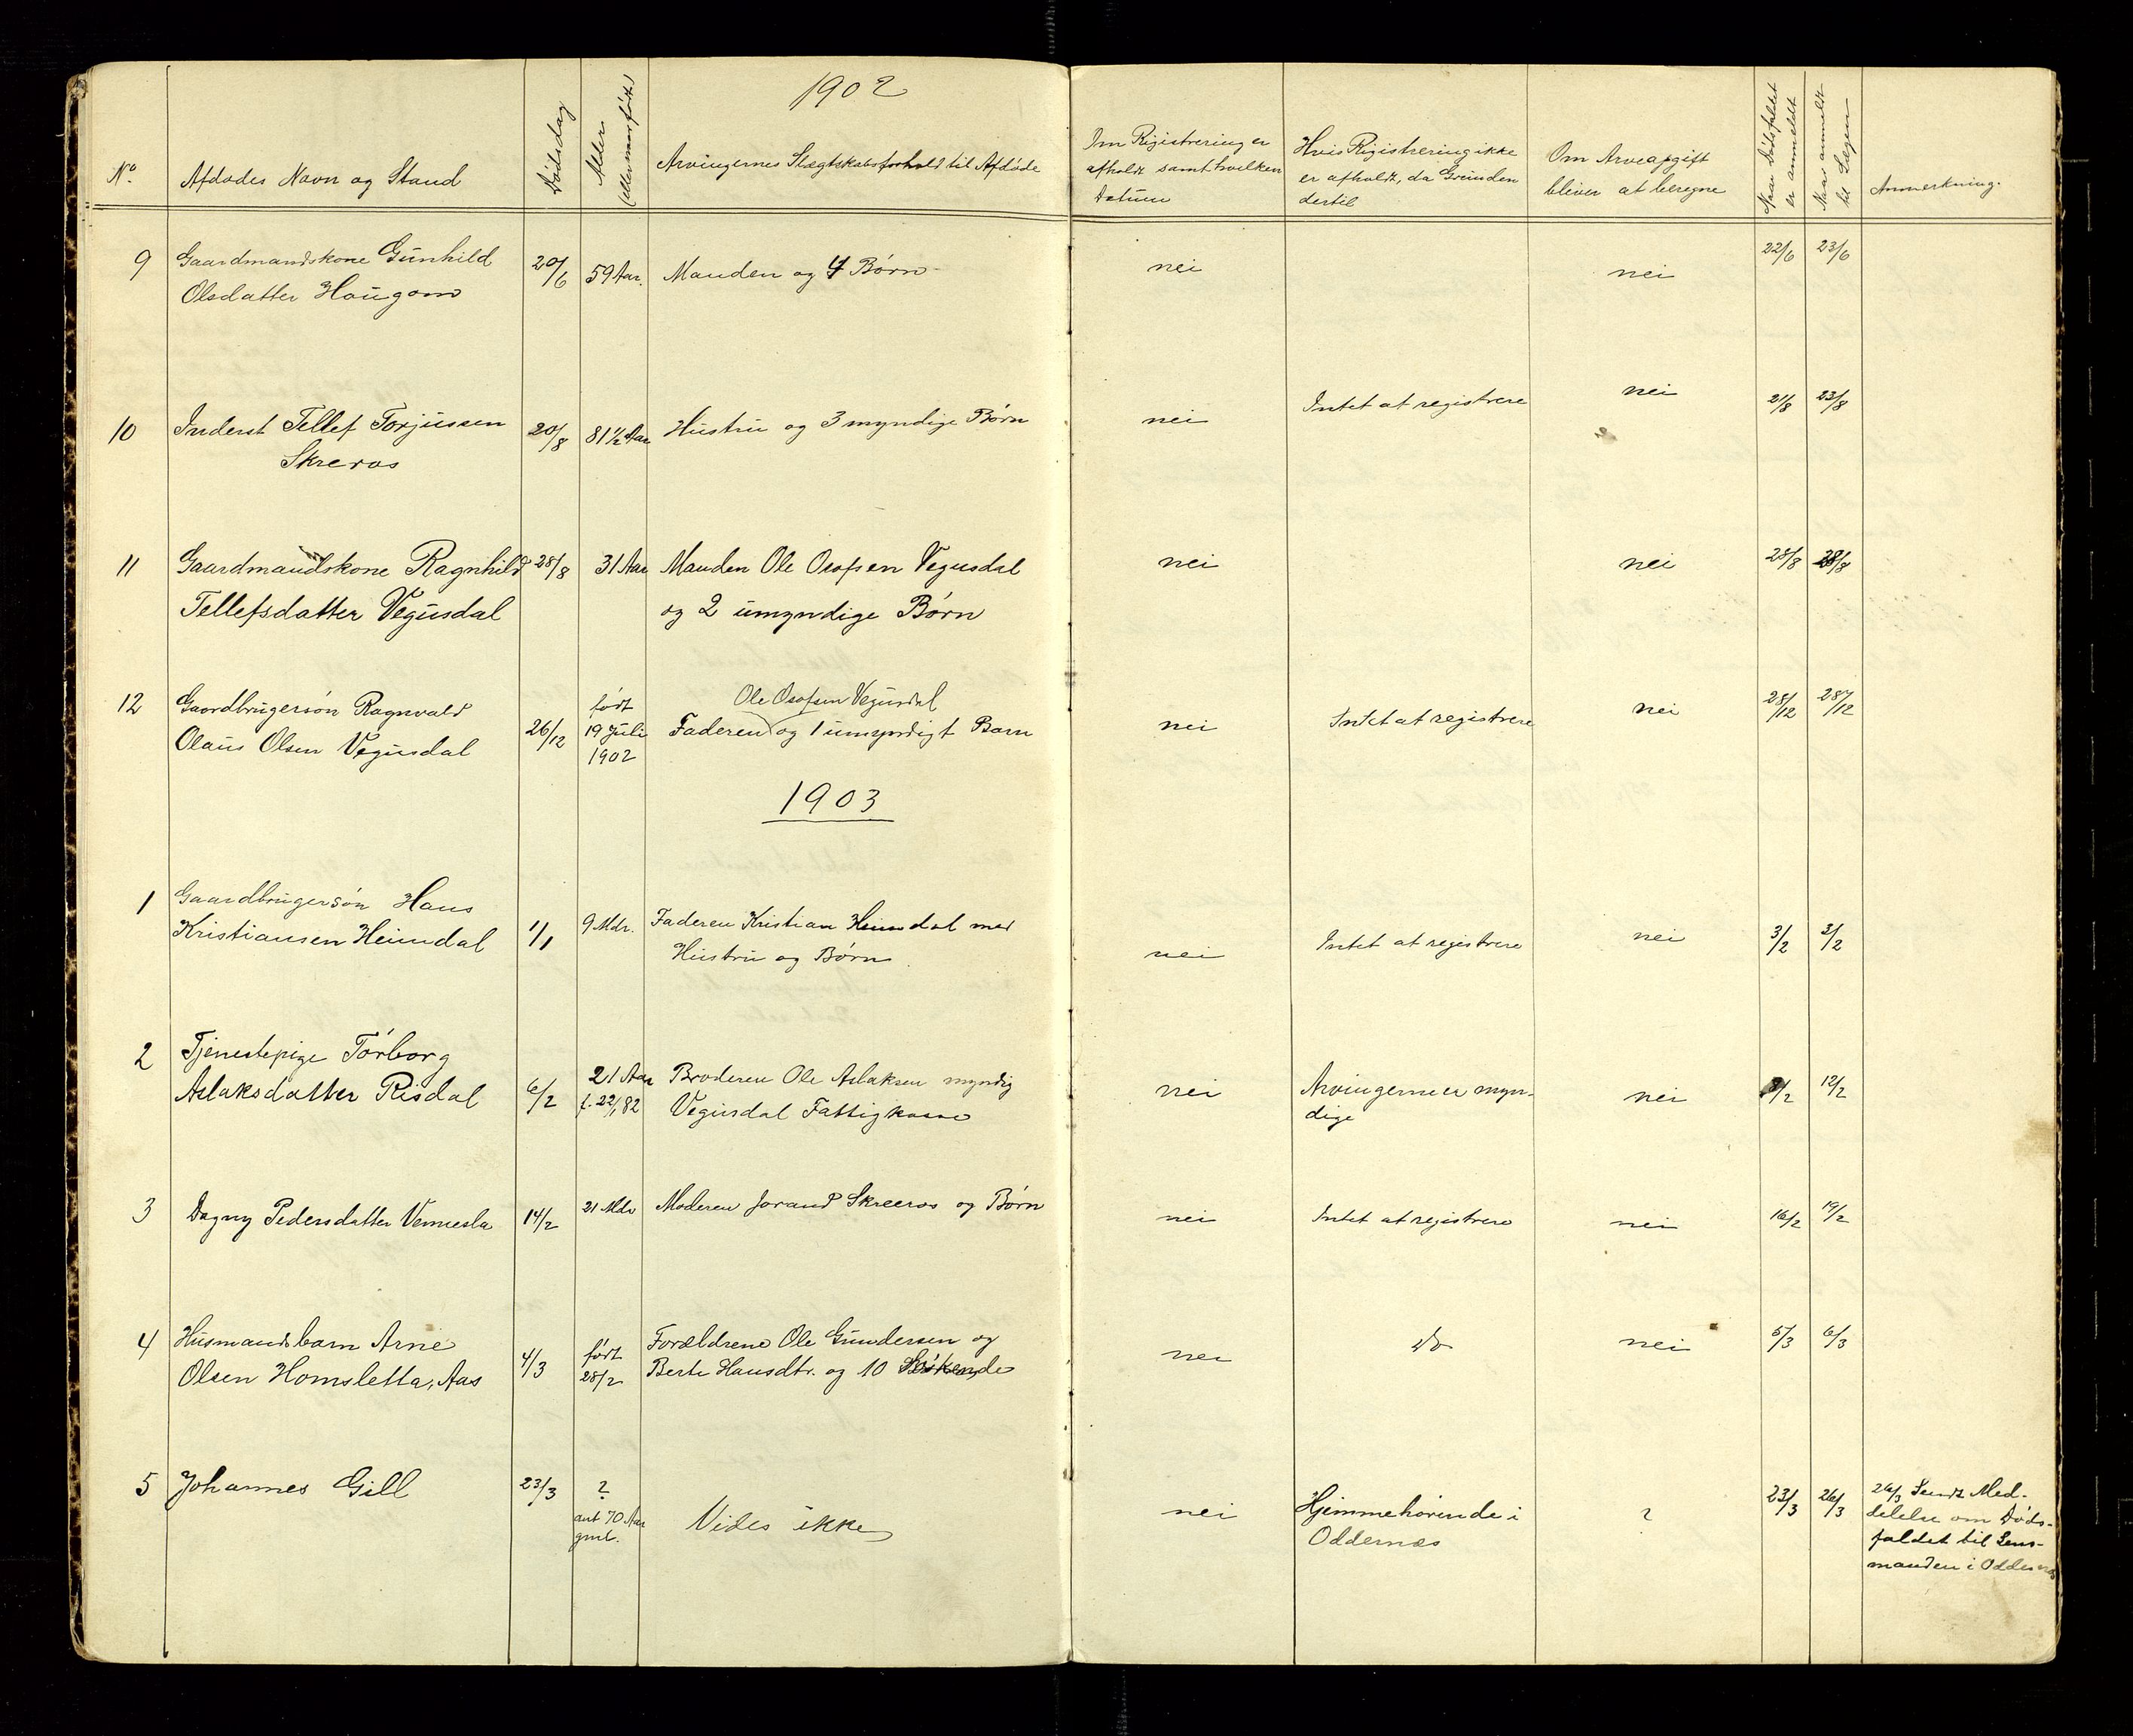 1902
No.
Afdødes Navn og Stand
Dødsdag
Alder
(eller naar født)
Arvingernes Slægtskabsforhold til Afdøde
Om Registrering er
afholdt samt hvilken
Datum
Hvis Registrering ikke
er afholdt, da Grunden
dertil
Om Arveafgift
bliver at beregne
Naar Dødsfaldet
er anmeldt
Naar anmeldt
til
Anmerkning.
9
Gaardmandskone Gunhild
Olsdatter Haugom
20/6
59 Aar.
Manden og 4 Børn
nei
nei
22/6
23/6
10
Inderst Tellef Torjussen
Skreros
20/8
81 1/2 Aar
Hustru og 3 myndige Børn
nei
Intet at registrere
nei
21/8
23/8
11
Gaardmandskone Ragnhild
Tellefsdatter Vegusdal
28/8
31 Aar
Manden Ole Osofsen Vegusdal
og 2 umyndige Børn
nei
nei
28/8
28/8
12
Gaardbrugersøn Ragnvald
Olaus Olsen Vegusdal
26/12
født
19 Juli
1902
Ole Osofsen Vegusdal
Faderen og 1 umyndigt Barn
nei
Intet at registrere
nei
28/12
28/12
1903
1
Gaardbrugersøn Hans
Kristiansen Heimdal
1/1
9 Mdr.
Faderen Kristian Heimdal med
Hustru og Børn.
nei
Intet at registrere
nei
3/2
3/2
2
Tjenestepige Tórborg
Aslaksdatter Risdal
6/2
21 Aar
f. 22/1 82
Broderen Ole Aslaksen myndig
Vegusdal Fattigkasse
nei
Arvingerne er myn-
dige
nei
/2
12/2
3
Dagny Pedersdatter Vennesla
14/2
21 Mdr
Moderen Jorand Skreeros og Børn
nei
Intet at registrere
nei
16/2
19/2
4
Husmandsbarn Arne
Olsen Homsletta, Aas
4/3
født
28/2
Forældrene Ole Gundersen og
Berte Hansdtr. og 10 Søskende
nei
Do
nei
5/3
6/3
5
Johannes Gill
23/3
?
ant 70 Aar
gml.
Vides ikke
nei
Hjemmehørende i
Oddernæs
?
23/3
26/3
26/3 Sendt Med-
delelse om Døds-
faldet til Lens-
manden i Oddernæs